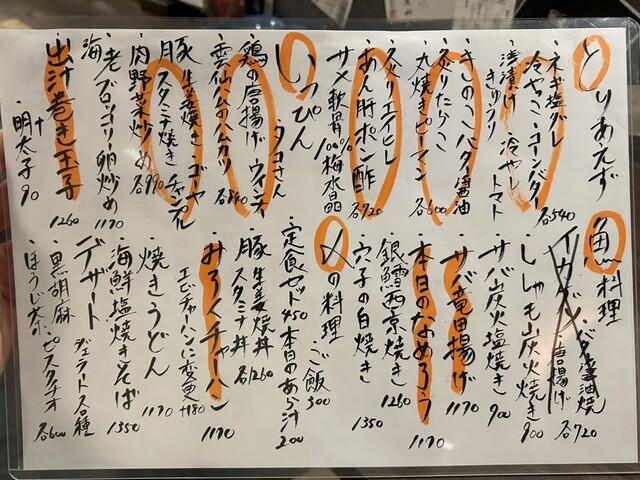 とりあえず
・ネギ塩ダレ
冷やっこ・コーンバター
・浅漬け・冷やし
きゅうり トマト
各540
・きのこバター醤油
・炙りたらこ
・丸焼きピーマン
各600
・炙りエイヒレ
・あん肝ポン酢
・サメ軟骨100%梅水晶
各720
いっぴん
・タコさん
ウィンナー
・鶏の唐揚げ
・雲仙ハムのハムカツ
各840
・豚生姜焼き・ゴーヤ
チャンプル
・豚スタミナ焼き
・肉野菜炒め
各990
・海老ブロッコリー卵炒め
1170
・出汁巻き玉子
1260
・明太子 +90
魚料理
・イワシ
バタ醤油焼
唐揚げ
各720
・ししゃも炭火焼き
900
・サバ炭火塩焼き
900
・サバ竜田揚げ
1170
・本日のなめろう
1170
・銀鱈西京焼き
1260
・穴子の白焼き
1350
〆の料理
・ご飯
300
・定食セット450
・本日のあら汁
200
・豚生姜焼丼
・豚スタミナ丼
各1260
・みろくチャーハン
1170
エビチャーハンに変更
+180
・焼きうどん
1170
・海鮮塩焼きそば
1350
デザート
ジェラート各種
・黒胡麻・ピスタチオ
・ほうじ茶
各600